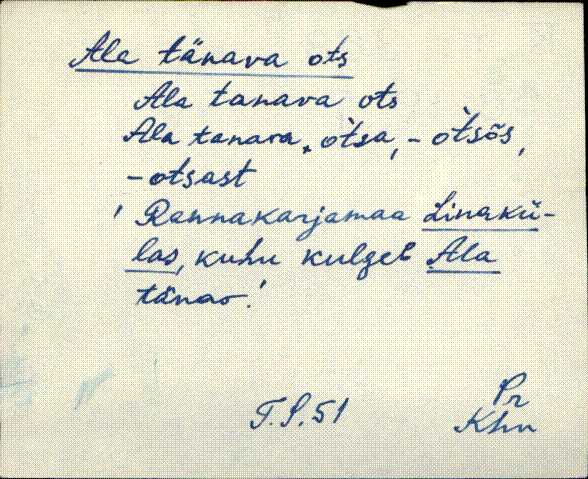 Ala tänava ots
Ala tanava ots
Ala tanava, òtsa, - òtsõs,
- otsast
' Rannakarjamaa Linakü-
las, kuhu kulgeb Ala
tänav.'
T.S.51
Pr
Khn